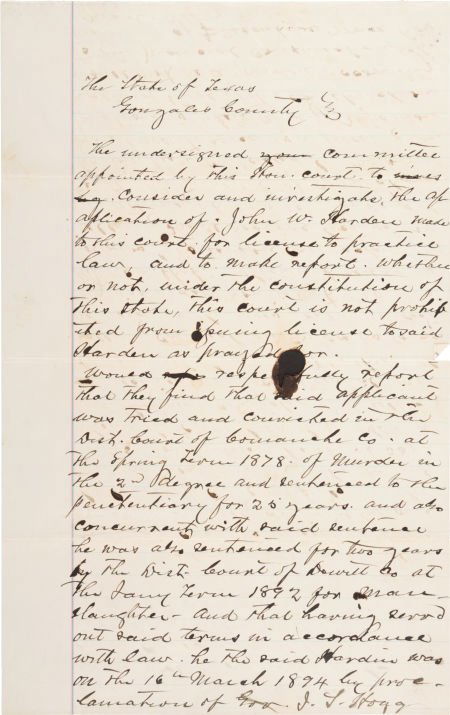 The State of Texas
Gonzales County
The undersigned your committee
appointed by this Hon. court, to
consider and investigate, the ap
application of. John W. Harden made
to this court, for license to practice
law, and to make report. Whether
or not, under the constitution of
this State, this court is not prohib
ited from issuing license to said
Harden as prayed for.
Would respectfully report
that they find that said applicant
was tried and convicted in the
Dist. Court of Comanche Co. at
the Spring Term 1878. of Murder in
the 2nd degree and sentenced to the
penitentiary for 25 years. and also
concurrent with said sentence
he was also sentenced for two years
by the Dist. Court of Dewitt Co at
the Jany Term 1892 for Man-
slaughter - And that having served
out said terms in accordance
with law. he the said Hardin was
on the 16th March 1894 by proc-
lamation of Gov. J. S. Hogg